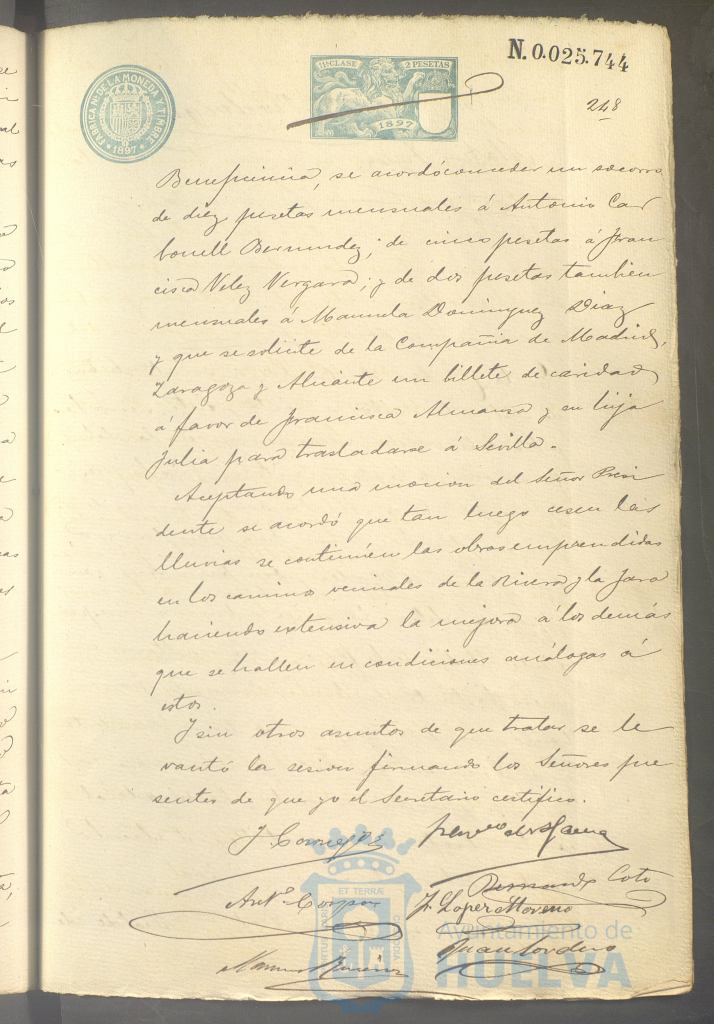 N. 0.025.744
11ª CLASE 2 PESETAS
1897
FÁBRICA Nal. DE LA MONEDA Y TIMBRE
1897
248
Beneficencia, se acordó conceder un socorro
de diez pesetas mensuales á Antonio Car
bonell Bermudez; de cinco pesetas á Fran
cisca Velez Vergara; y de dos pesetas tambien
mensuales á Manuela Dominguez Diaz
y que se solicite de la Compañia de Madrid,
Zaragoza y Alicante un billete de caridad
á favor de Francisca Almansa y su hija
Julia para trasladarse á Sevilla.
Aceptando una mocion del Señor Presi
dente se acordó que tan luego cesen las
lluvias se continúen las obras emprendidas
en los caminos vecinales de la Rivera y la Jara
haciendo extensiva la mejora á los demás
que se hallen en condiciones análogas á
estos.
Y sin otros asuntos de que tratar se le
vantó la sesion firmando los Señores pre
sentes de que yo el Secretario certifico.
Coto
Antº
J. Lopez Moreno
Juan Cordero
ET TERRÆ
Ayuntamiento de
HUELVA